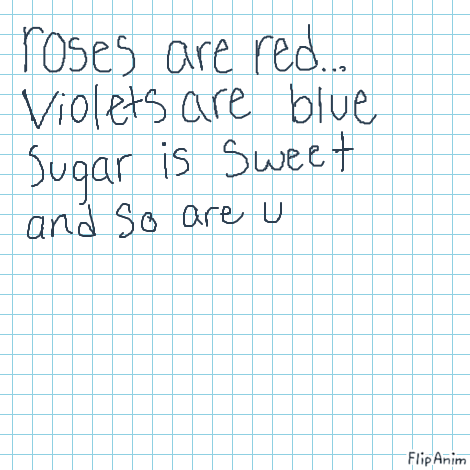 roses are red...
Violets are blue
Sugar is sweet
and so are u
FlipAnim